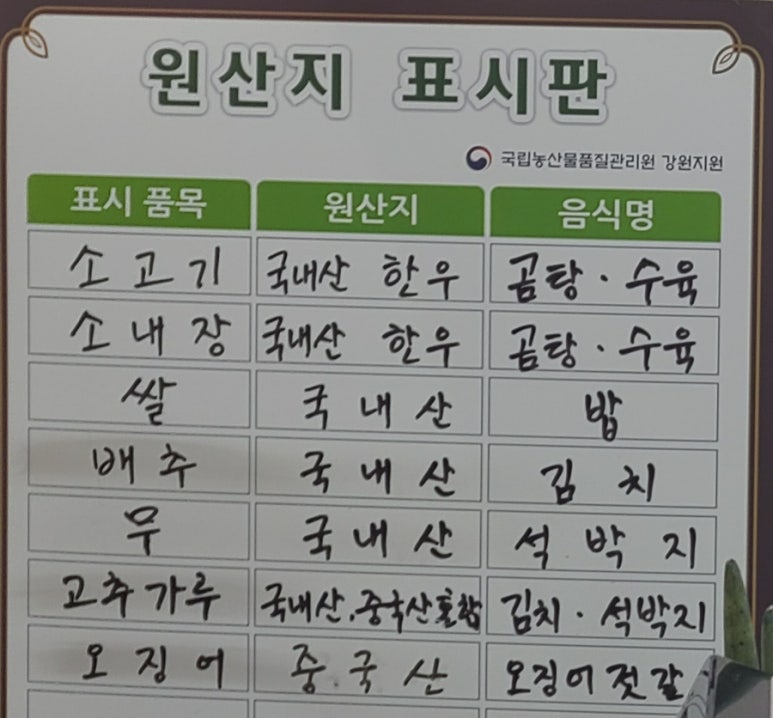 원산지 표시판
국립농산물품질관리원 강원지원
표시 품목 원산지 음식명
소고기 국내산 한우 곰탕·수육
소내장 국내산 한우 곰탕·수육
쌀 국내산 밥
배추 국내산 김치
무 국내산 석박지
고추가루 국내산.중국산혼합 김치·석박지
오징어 중국산 오징어젓갈